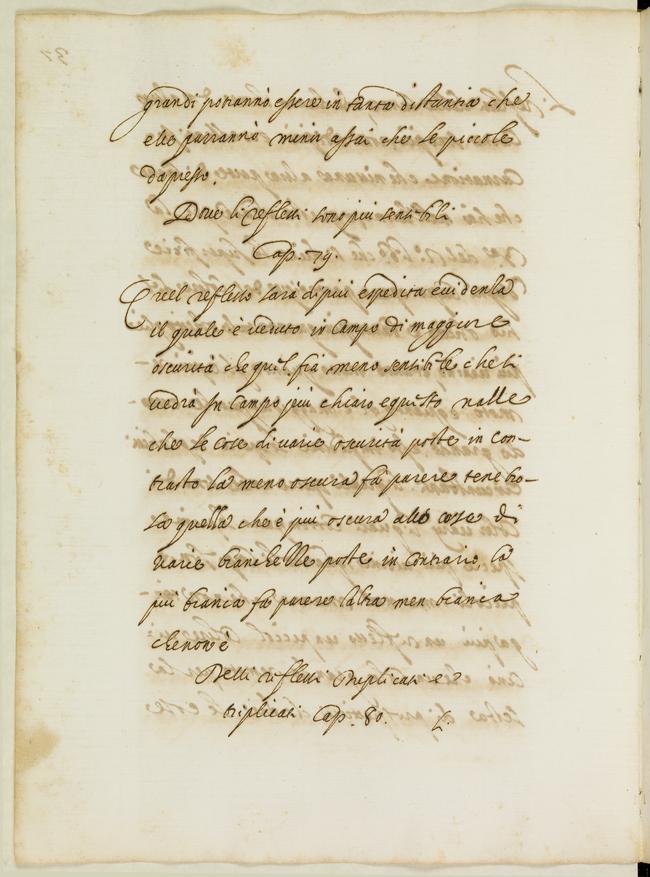 grandi potranno essere in tanta distantia che
elle parranno minor assai che le piccole
da presso.
Doue li reflessi sono piu sensibili
Cap. 79.
Quel reflesso sarà di piu espedita euidenza
il quale è ueduto in campo di maggiore
oscurità che quel fia meno sensibile che si
uedrà in campo piu chiaro e questo nasce
che le cose di uarie oscurità poste in con-
trasto la meno oscura fa parere tenebro-
sa quella che è piu oscura alle cose di
uarie bianchezze poste in contrario, la
piu bianca fa parere laltra men bianca
che non è
Delli reflessi duplicati e
triplicati Cap. 80.